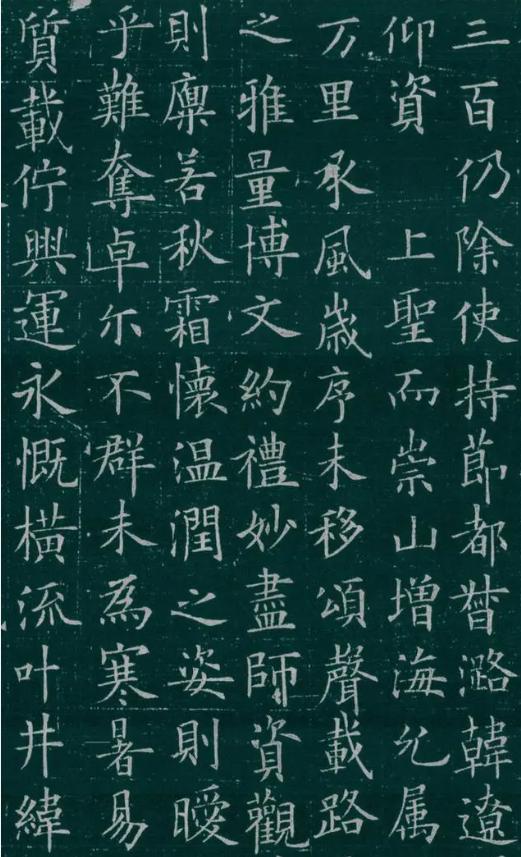 三百仍除使持節都督潞韓遼
仰資 上聖而崇山增海允属
万里承風歳序未移頌聲載路
之雅量博文約禮妙盡師資觀
則廩若秋霜懷温潤之姿則曖
乎難奪卓尒不群未為寒暑易
質載佇興運永慨橫流叶井緯